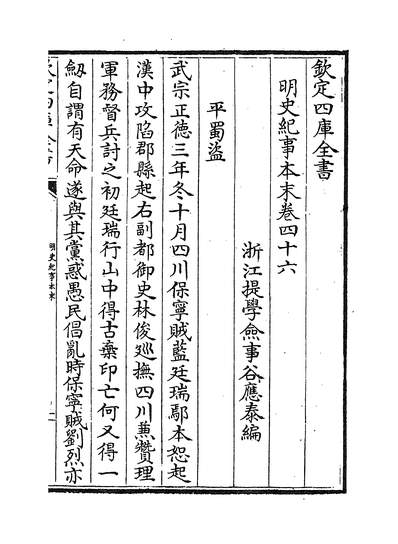 欽定四庫全書
明史紀事本末卷四十六
浙江提學僉事谷應泰編
平蜀盜
武宗正德三年冬十月四川保寧賊藍廷瑞鄢本恕起
漢中攻陷郡縣起右副都御史林俊廵撫四川兼贊理
軍務督兵討之初廷瑞行山中得古棄印亡何又得一
劔自謂有天命遂與其黨惑愚民倡亂時保寧賊劉烈亦
明史紀事本末